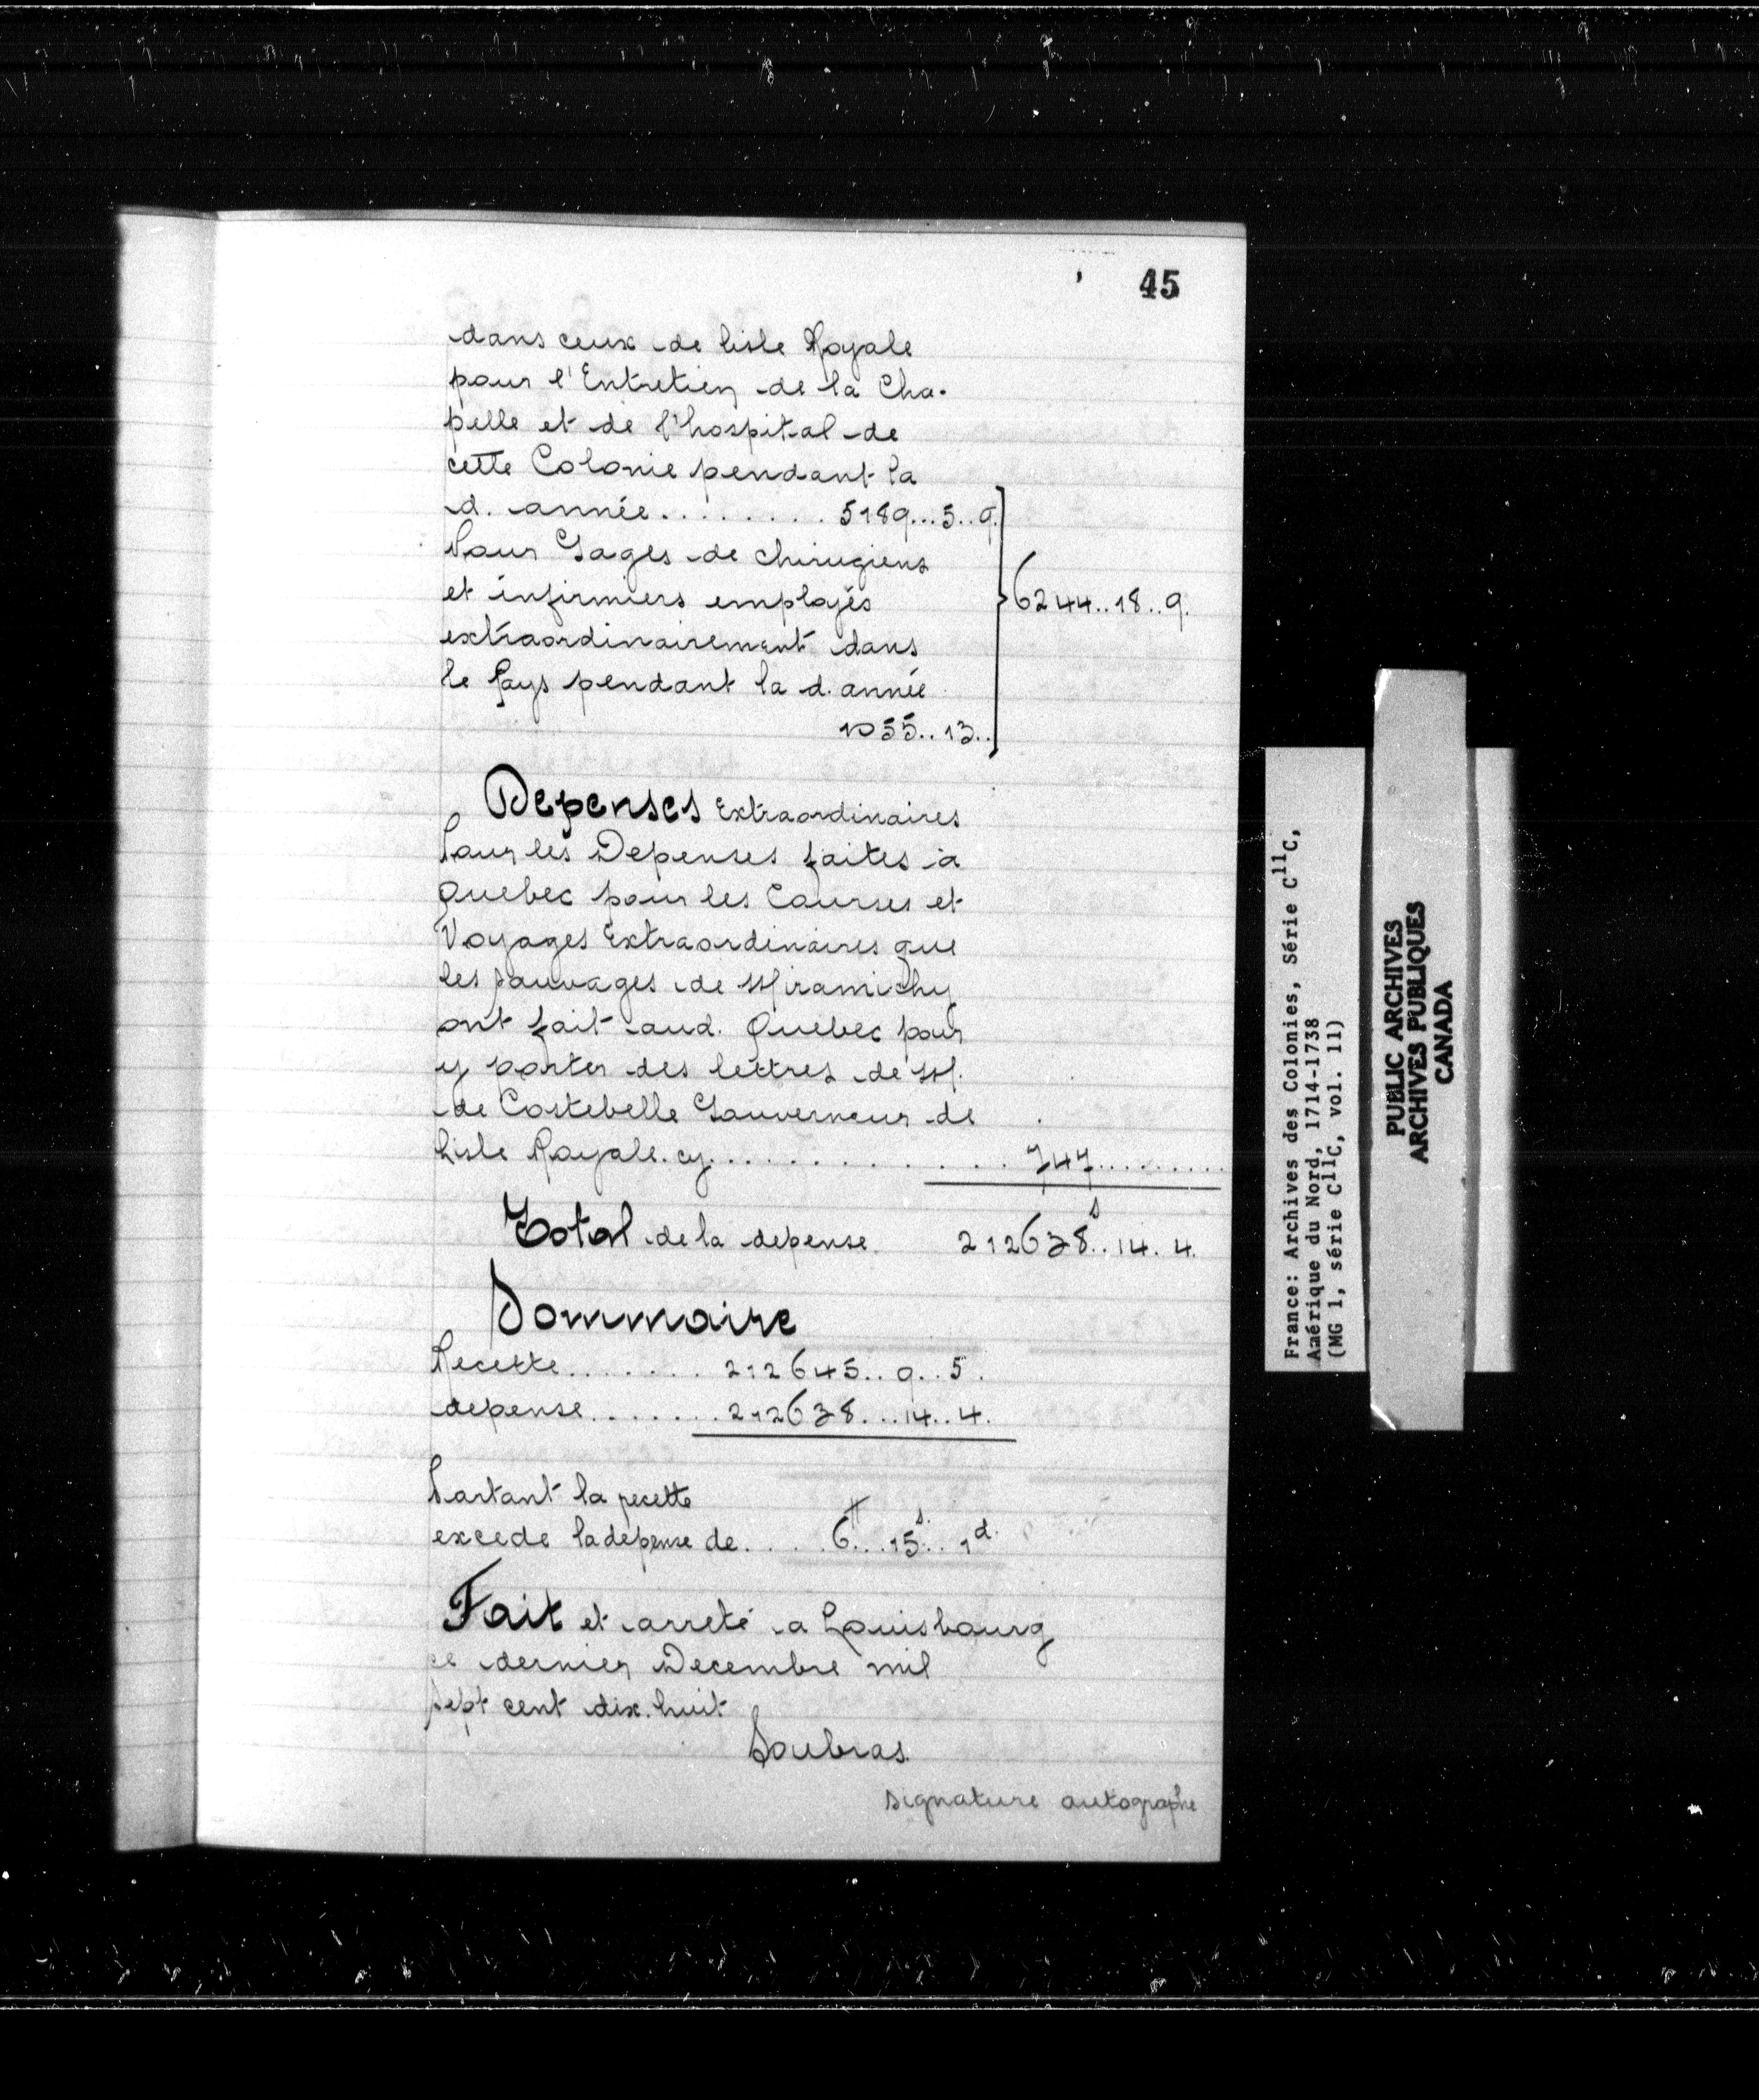 45
dans ceux de lisle Royale
pour l'Entretien de la Cha-
pelle et de l'hospital de
cette Colonie pendant la
d. année........5189...5..9.
Pour Gages de chirugiens
et infirmiers employés
extraordinairement dans
le Pays pendant la d. année
1055..13..
6244..18..9.
Depenses Extraordinaires
Pour les Depenses faites a
Quebec pour les Courses et
Voyages Extraordinaires que
les sauvages de Miramichy
ont fait aud. Quebec pour
y porter des lettres de M.
de Costebelle Gouverneur de
lisle Royale. cy............. 747.........
Total de la depense. 212638s..14.4.
Sommaire
Recette....... 212645..9..5.
depense.......212638...14..4.
Partant la recette
excede la depense de.....6₶...15s...1d.
Fait et arreté a Louisbourg
ce dernier Decembre mil
sept cent dix. huit
Soubras.
signature autographe
France: Archives des Colonies, Série C11C,
Amérique du Nord, 1714-1738
(MG 1, série C11C, vol. 11)
PUBLIC ARCHIVES
ARCHIVES PUBLIQUES
CANADA